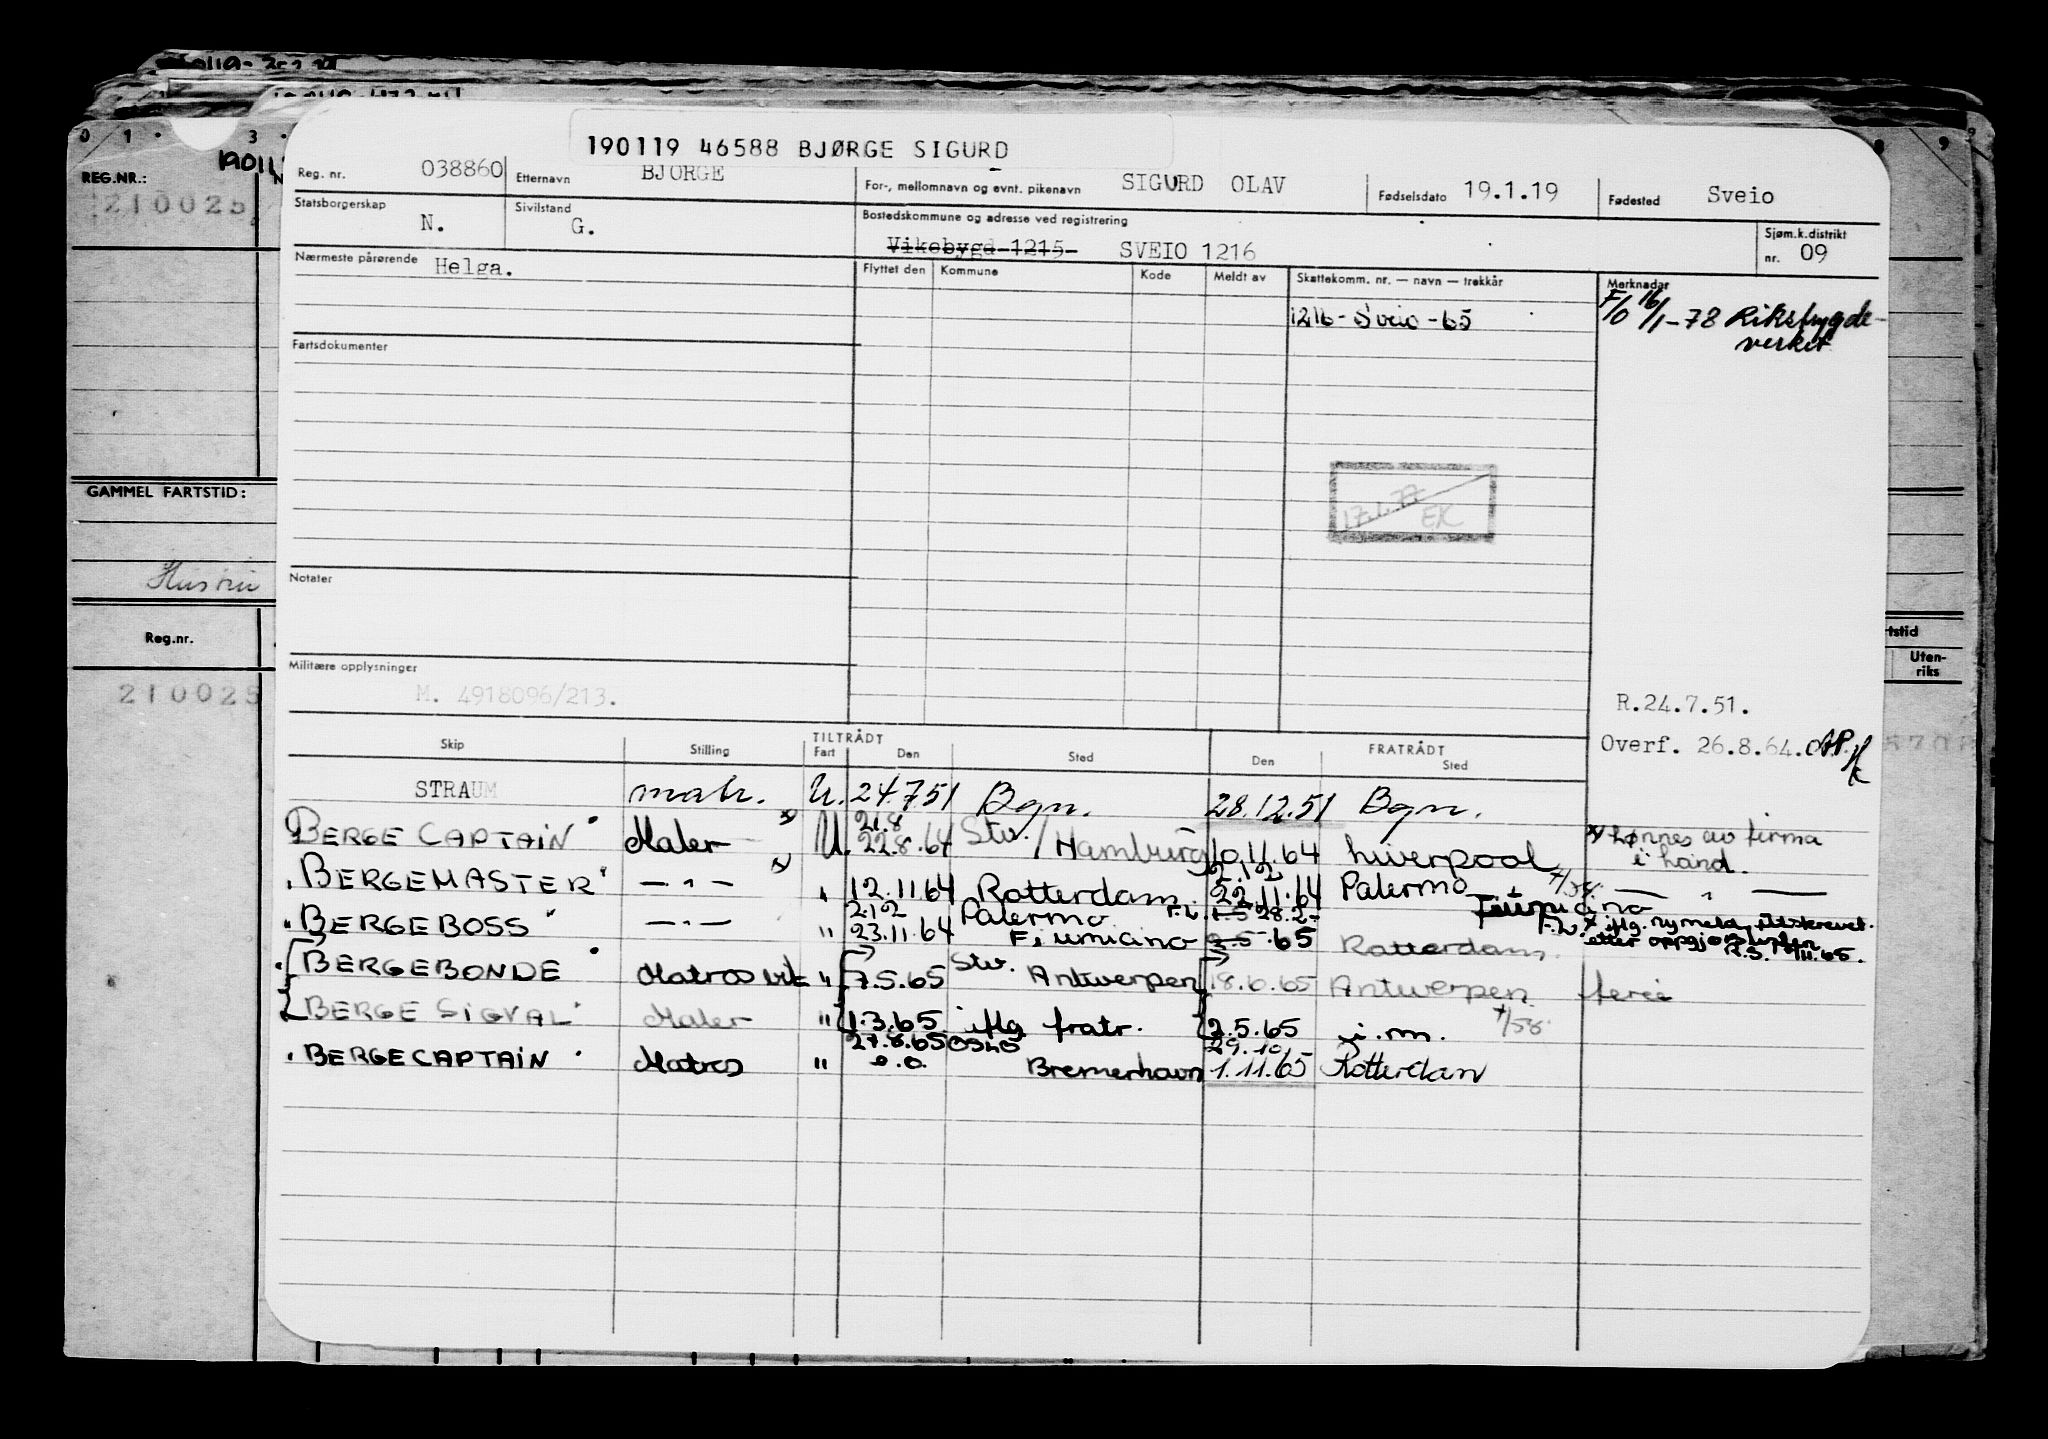 0 1 3 8 9
REG.NR.:
210025
GAMMEL FARTSTID:
Hustru
Reg.nr.
210025
190119 46588 BJØRGE SIGURD
Reg. nr. 038860 Etternavn BJØRGE For-, mellomnavn og evnt. pikenavn SIGURD OLAV Fødselsdato 19.1.19 Fødested Sveio
Statsborgerskap N. Sivilstand G. Bostedskommune og adresse ved registrering Vikebygd 1215 SVEIO 1216 Sjøm.k.distrikt nr. 09
Nærmeste pårørende Helga. Flyttet den Kommune Kode Meldt av Skattekomm. nr. — navn — trekkår Merknader
1216 - Sveio - 65 F/0 16/1-78 Rikstrygde-
verket
Fartsdokumenter
17.1.77 EK
Notater
Militære opplysninger
M. 4918096/213.
R.24.7.51.
Overf. 26.8.64.
Utenriks
Skip Stilling TILTRÅDT Fart Den Sted Den FRATRÅDT Sted
STRAUM matr. U. 24.7.51 Bgn. 28.12.51 Bgn.
BERGE CAPTAIN" Maler x) U. 21.8 22.8.64 Stv. / Hamburg 10.11.64 Liverpool x) Lønnes av firma
i land.
"BERGEMASTER" — " — x) " 12.11.64 Rotterdam 2.12 22.11.64 Palermo — " —
"BERGEBOSS" — " — " 2.12 23.11.64 Palermo Fiumicino 28.2.65 Fiumicino Rotterdam iflg. ny meld. utskrevet
etter oppgjørslisten
"BERGEBONDE" Matros " 7.5.65 Stv. Antwerpen 18.6.65 Antwerpen ferie
"BERGE SIGVAL" Maler " 1.3.65 iflg fratr. 2.5.65 i.m. +/58
"BERGECAPTAIN" Matros " 27.8.65 Oslo Bremerhavn 29.10 1.11.65 Rotterdam